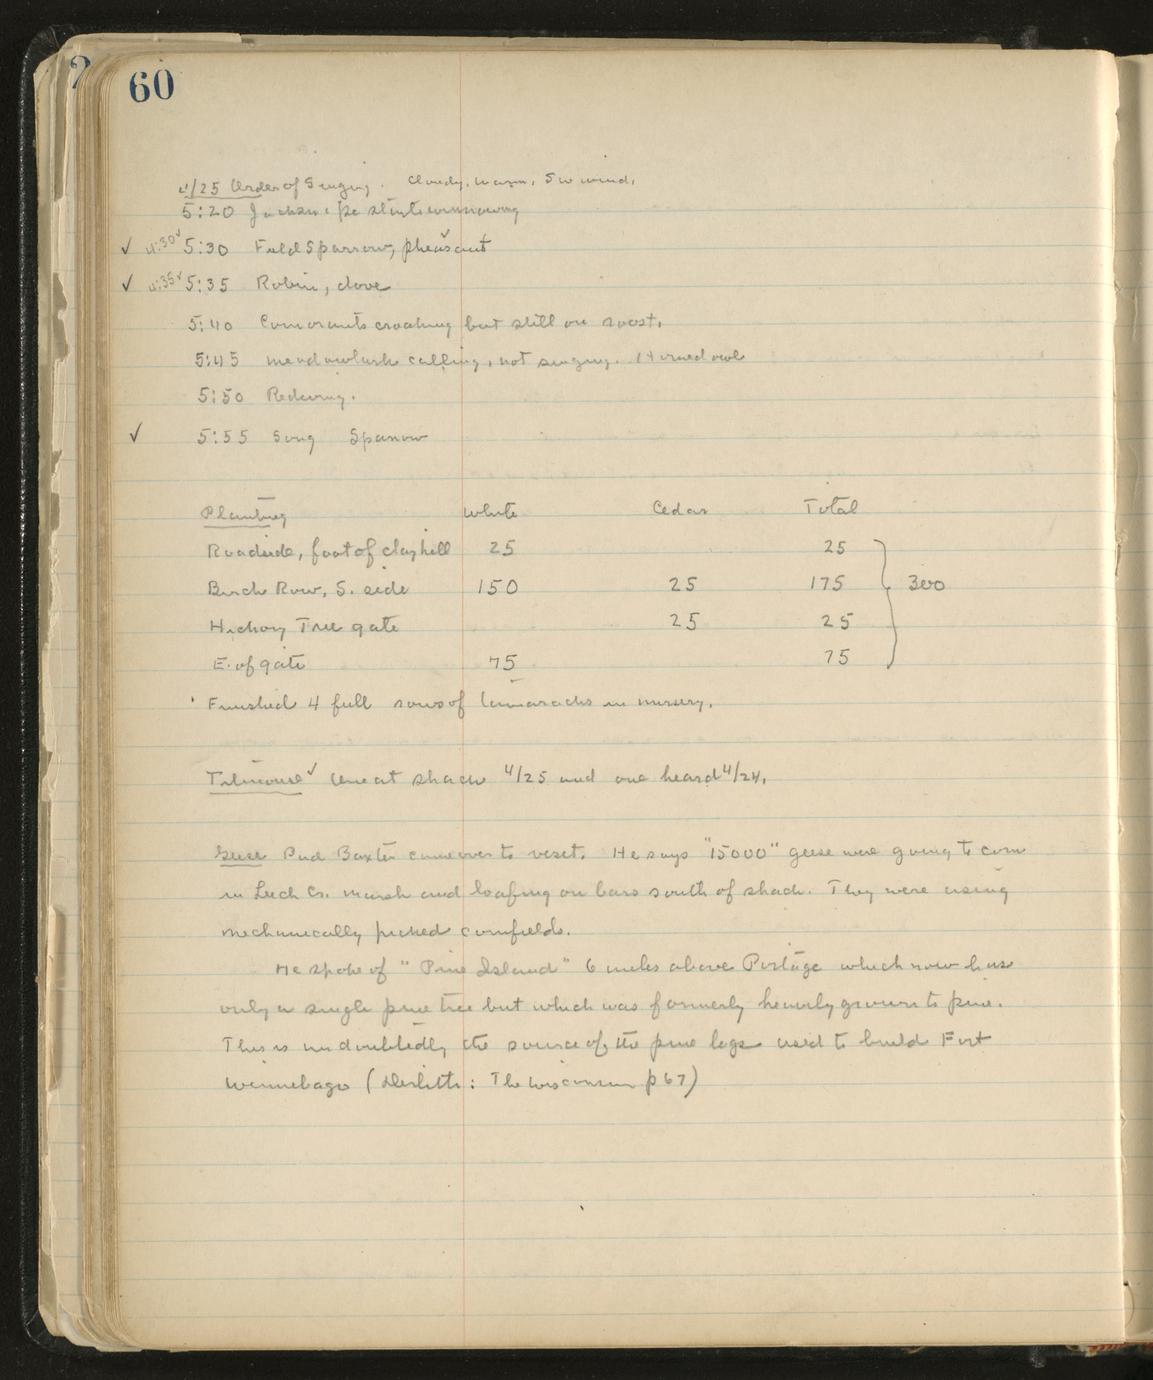 60
4/25 Order of Singing. Cloudy, warm, SW wind,
5:20 Jacksnipe starts winnowing
✓ 4:30✓ 5:30 Field Sparrow, pheasant✓
✓ 4:35✓ 5:35 Robin, dove
5:40 Cormorants croaking but still on roost.
5:45 meadowlark calling, not singing. Horned owl
5:50 Redwing.
✓ 5:55 Song Sparrow
Planting White Cedar Total
Roadside, foot of clay hill 25 25
Birch Row, S. side 150 25 175 300
Hickory Tree gate 25 25
E. of gate 75 75
Finished 4 full rows of tamaracks in nursery.
Titmouse✓ One at shack 4/25 and one heard 4/24.
Geese Pud Baxter came over to visit. He says "15000" geese were going to corn
in Leech Cr. marsh and loafing on bars south of shack. They were using
mechanically picked cornfields.
He spoke of "Pine Island" 6 miles above Portage which now has
only a single pine tree but which was formerly heavily grown to pine.
This is undoubtedly the source of the pine logs used to build Fort
Winnebago (Derleth: The Wisconsin p 67)